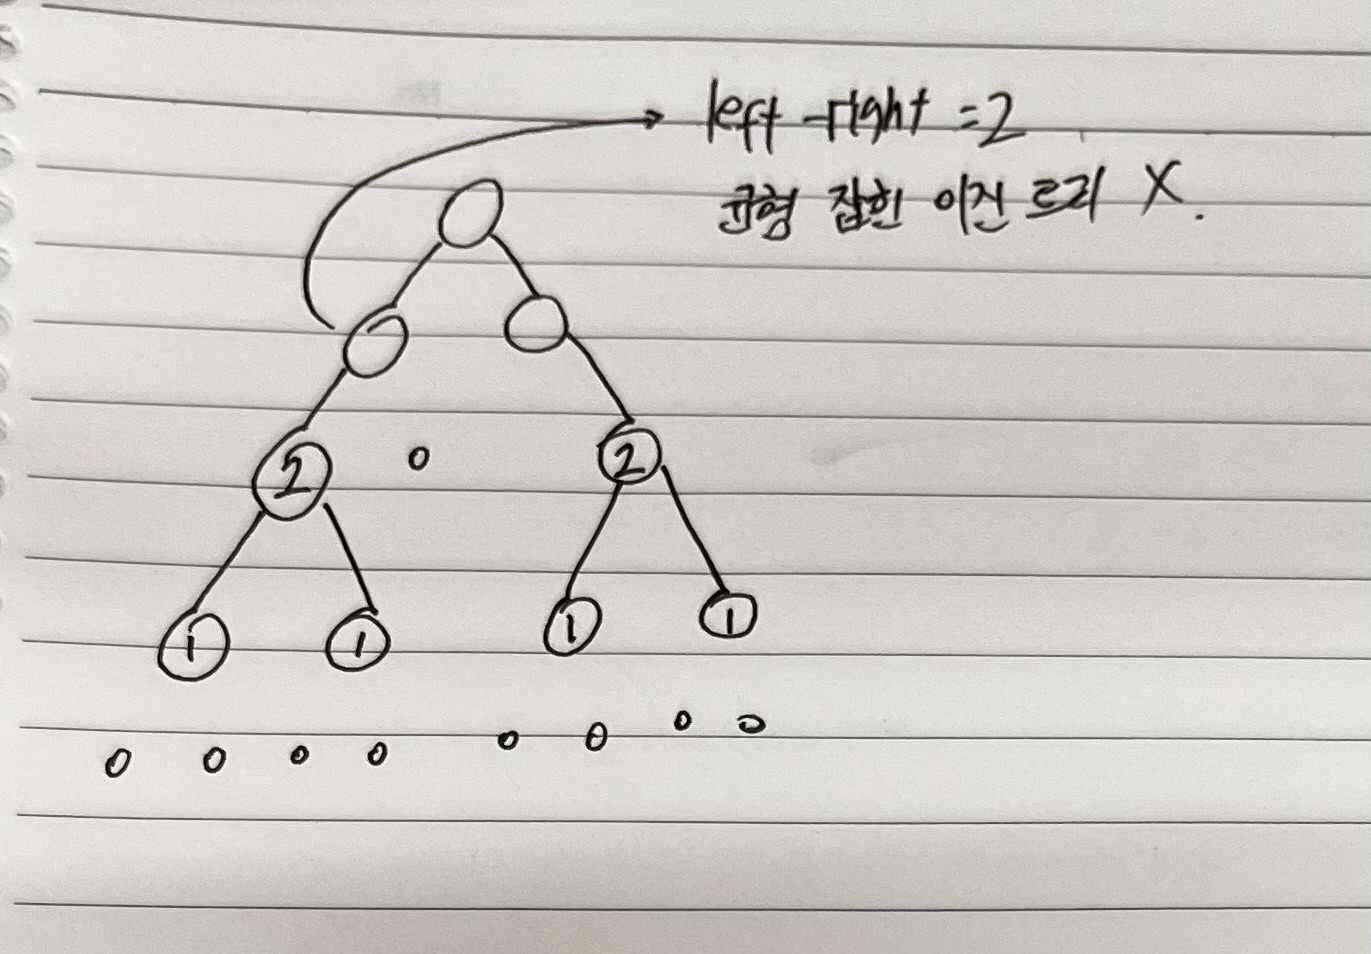 left -right =2
균형 잡힌 이진 트리 X.
2 0 2
1 1 1 1
0 0 0 0 0 0 0 0